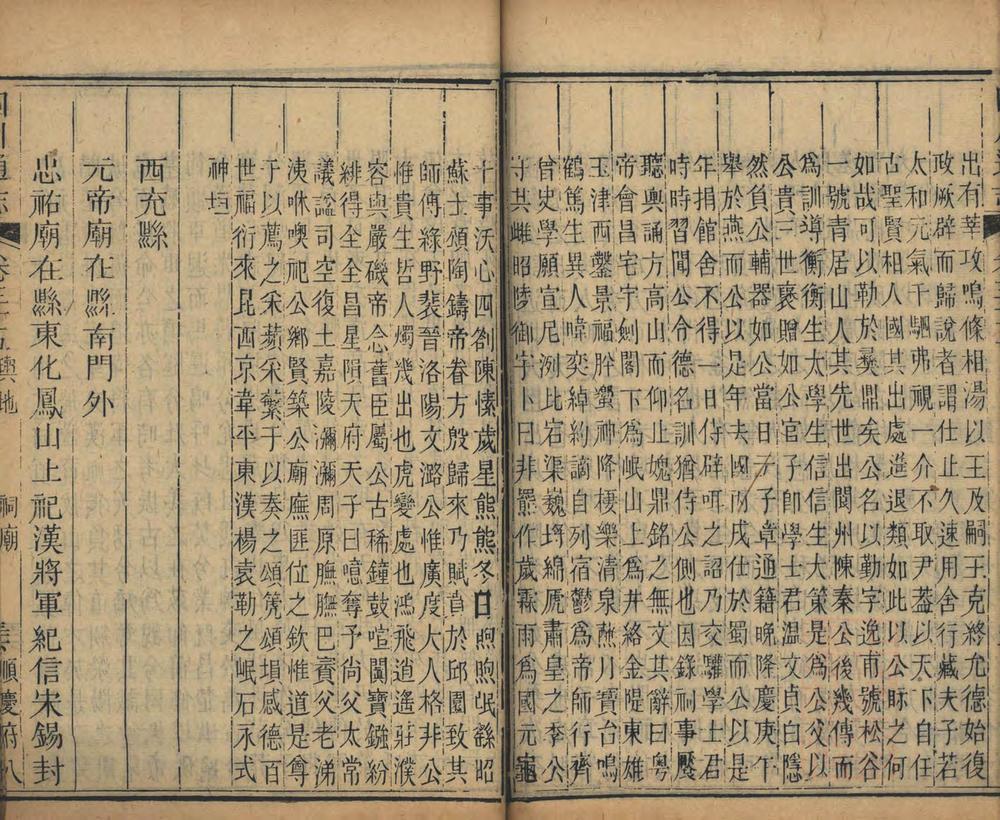 出有莘攻鳴條相湯以王及嗣王克終允德始復
政厥辟而歸說者謂仕止久速用舍行藏夫子若
太和元氣千駟弗視一介不取尹蓋以天下自任
古聖賢相人國其出處進退類如此以公眎之何
如哉可以勒於彝鼎矣公名以勤字逸甫號松谷
一號青居山人其先世出閬州陳秦公後幾傳而
為訓導衡衡生太學生信信生大策是為公父以
公貴三世褒贈如公官子卽學士君温文貞白隱
然負公輔器如公當日子子章通籍晚隆慶庚午
舉於燕而公以是年去國丙戌仕於蜀而公以是
年捐館舍不得一日侍辟咡之詔乃交驩學士君
時時習聞公令德名訓猶侍公側也因錄祠事饜
聽輿誦方高山而仰止媿鼎銘之無文其辭曰粤
帝會昌宅宇劍閣下為岷山上為井絡金隄東雄
玉津西鑿景福肸蠁神降棲樂清泉蘸月寶台鳴
鶴篤生異人暐奕綽約謫自列宿鬱為帝師行齊
曾史學願宣尼洌比宕渠巍埒綿虒肅皇之季公
守其雌昭陵御宇卜曰非羆作歲霖雨為國元龜
十事沃心四劄陳愫歲星熊熊冬日煦煦氓謠昭
蘇士頌陶鑄帝眷方殷歸來乃賦賁於邱園致其
師傅綠野裴晉洛陽文潞公惟廣度大人格非公
惟貴生哲人燭幾出也虎變處也鴻飛逍遙莊濮
容與嚴磯帝念舊臣屬公古稀鐘鼓喧闐寶鏹紛
緋得全全昌星隕天府天子曰噫奪予尚父太常
議謚司空復土嘉陵瀰瀰周原膴膴巴賨父老涕
洟咻噢祀公鄉賢築公廟廡匪位之欽惟道是尊
于以薦之采蘋采蘩于以奏之頌箎頌塤感德百
世福衍來昆西京韋平東漢楊袁勒之岷石永式
神垣
西充縣
元帝廟在縣南門外
忠祐廟在縣東化鳳山上祀漢將軍紀信宋錫封
四川通志 卷三十五 輿地 祠廟 順慶府 八